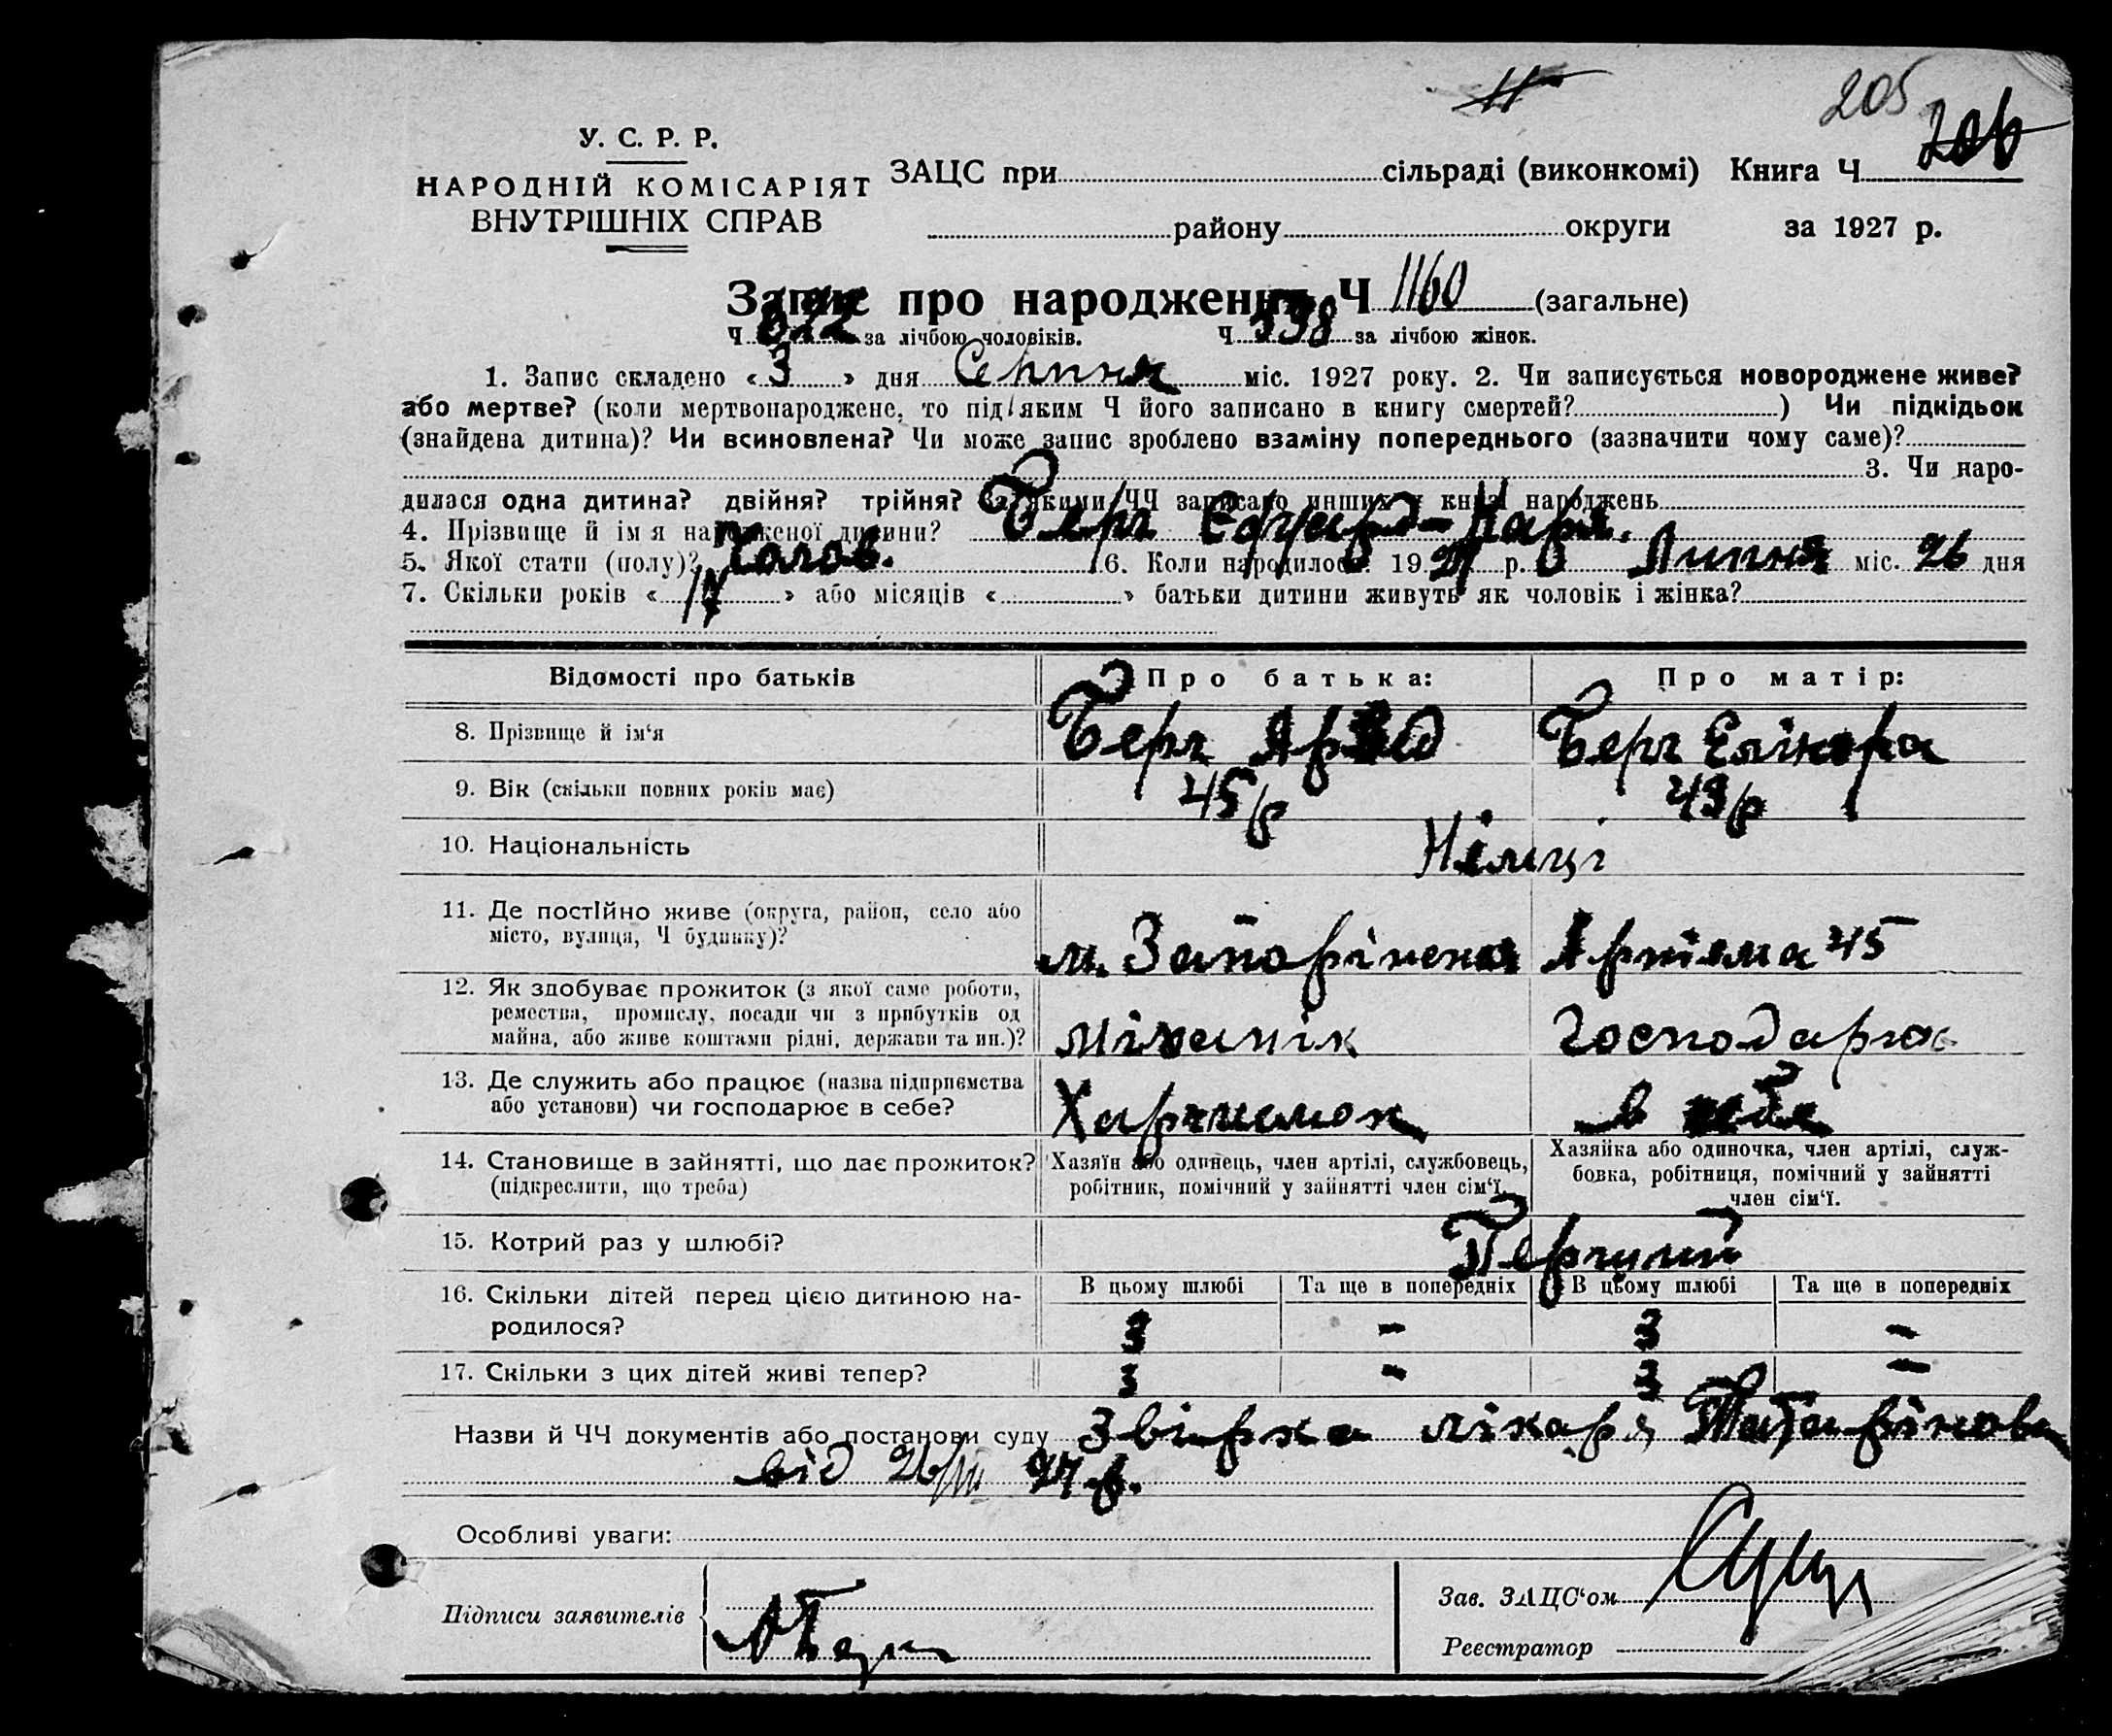 205
206
У. С. Р. Р.
НАРОДНІЙ КОМІСАРІЯТ
ВНУТРІШНІХ СПРАВ
ЗАЦС при сільраді (виконкомі) Книга Ч
району округи за 1927 р.
Запис про народження Ч 1160 (загальне)
Ч 622 за лічбою чоловіків. Ч 538 за лічбою жінок.
1. Запис складено «3» дня Серпня міс. 1927 року. 2. Чи записується новороджене живе?
або мертве? (коли мертвонароджене, то під яким Ч його записано в книгу смертей? ) Чи підкідьок
(знайдена дитина)? Чи всиновлена? Чи може запис зроблено взаміну попереднього (зазначити чому саме)?
3. Чи наро-
дилася одна дитина? двійня? трійня? За якими ЧЧ записано инших у книзі народжень
4. Прізвище й ім я народженої дитини? Берг Едуард-Карл.
5. Якої стати (полу)? Чолов. 6. Коли народилося? 1927 р. Липня міс. 26 дня
7. Скільки років «17» або місяців « » батьки дитини живуть як чоловік і жінка?
Відомості про батьків Про батька: Про матір:
8. Прізвище й ім‘я Берг Арвед Берг Елінора
9. Вік (скільки повних років має) 45 р 43 р
10. Національність Німці
11. Де постійно живе (округа, район, село або
місто, вулиця, Ч будинку)? м. Запоріжежа Артема 45
12. Як здобуває прожиток (з якої саме роботи,
ремества, промислу, посади чи з прибутків од
майна, або живе коштами рідні, держави та ин.)? міханік Господарює
13. Де служить або працює (назва підприємства
або установи) чи господарює в себе? в себе
14. Становище в зайнятті, що дає прожиток?
(підкреслити, що треба)
Хазяїн або одинець, член артілі, службовець,
робітник, помічний у зайнятті член сім‘ї.
Хазяйка або одиночка, член артілі, служ-
бовка, робітниця, помічний у зайнятті
член сім‘ї.
15. Котрий раз у шлюбі? Перший
В цьому шлюбі Та ще в попередніх В цьому шлюбі Та ще в попередніх
16. Скільки дітей перед цією дитиною на-
родилося? 3 – 3 –
17. Скільки з цих дітей живі тепер? 3 – 3 –
Назви й ЧЧ документів або постанови суду лікаря
від 26/VII 27 р.
Особливі уваги:
Підписи заявителів
Зав. ЗАЦС‘ом
Реєстратор